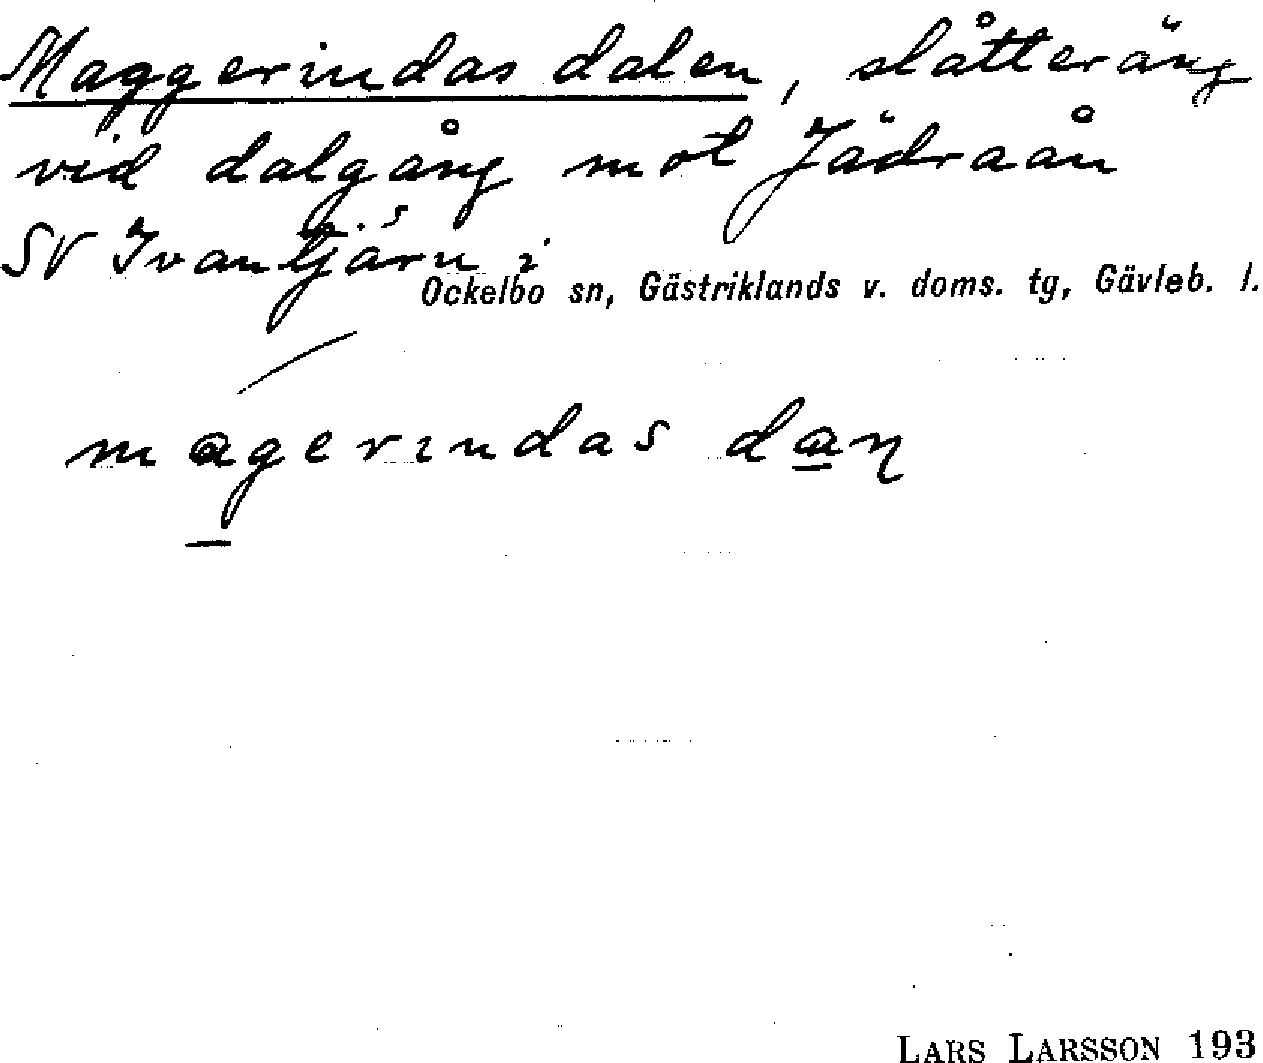 Maggerindas dalen, slåtteräng
vid dalgång mot Jädraån
SV Ivantjärn i
Ockelbo sn, Gästriklands v. doms. tg, Gävleb. l.
magerindas daņ
LARS LARSSON 193